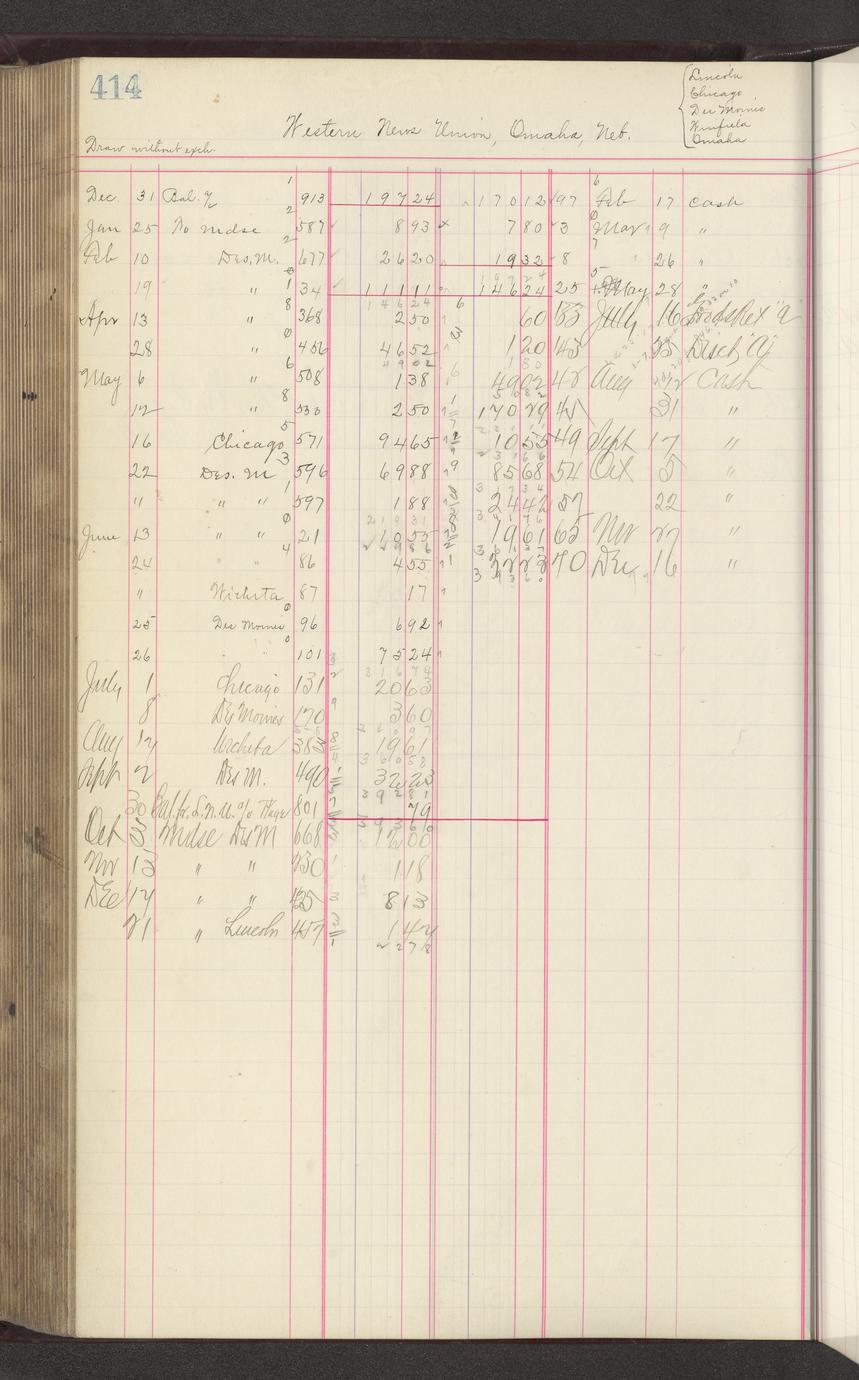 414
Lincoln
Chicago
Des Moines
Winfield
Omaha
Western News Union, Omaha, Neb.
Draw without exch.
Dec. 31 Bal. 913 197 24 170 12 97 Feb 17 Cash
Jan 25 To mdse 587 8 93 7 80 3 Mar 9 "
Feb 10 Des. M. 677 26 20 19 32 8 " 26 "
19 " 34 111 11 146 24 25 May 28 "
Apr 13 " 368 2 50 60 133 July 16
28 " 456 46 52 1 20 143 25 Disct "A"
May 6 " 508 1 38 49 02 42 Aug Cash
12 " 530 2 50 170 29 31 "
16 Chicago 571 94 65 10 55 49 Sept 17 "
22 Des. M 596 69 88 85 68 54 Oct 5 "
" " " 597 1 88 24 42 57 22 "
June 13 " " 21 10 55 19 61 63 Nov 27 "
24 " " 86 4 55 32 23 70 Dec 16 "
" Wichita 87 17
25 Des Moines 96 6 92
26 " " 101 75 24
July 1 Chicago 131 20 63
8 Des Moines 170 3 60
Aug 14 Wichita 383 19 61
Sept 2 Des M. 490 32 23
30 Bal. fr. L.N.U. a/c 801 79
Oct 3 Mdse Des M 668 12 00
Nov 13 " " 230 1 18
Dec 14 " " 425 8 13
21 " Lincoln 457 1 47